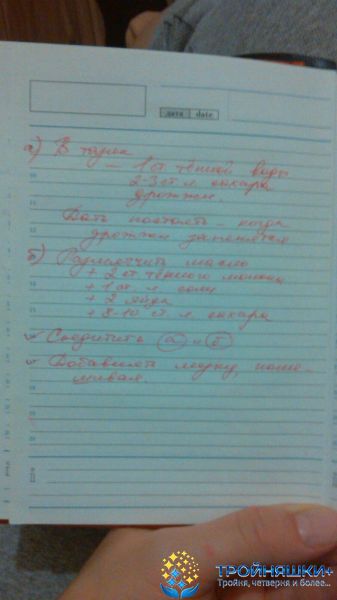 дата date
а) В тазик
— 1 ст тёплой воды
2-3 ст л. сахара
дрожжи.
Дать постоять – когда
дрожжи запенятся
б) Размягчить масло
+ 2 ст. тёплого молока
+ 1 ст. л. соли
+ 2 яйца
+ 8-10 ст. л. сахара
Соединить а и б
Добавлять муку, поме-
шивая.
ТРОЙНЯШКИ+
Тройня, четверня и более...